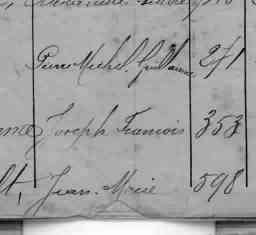 Pierre Michel Guillaume 271
Joseph Francois 353
Jean Marie 598